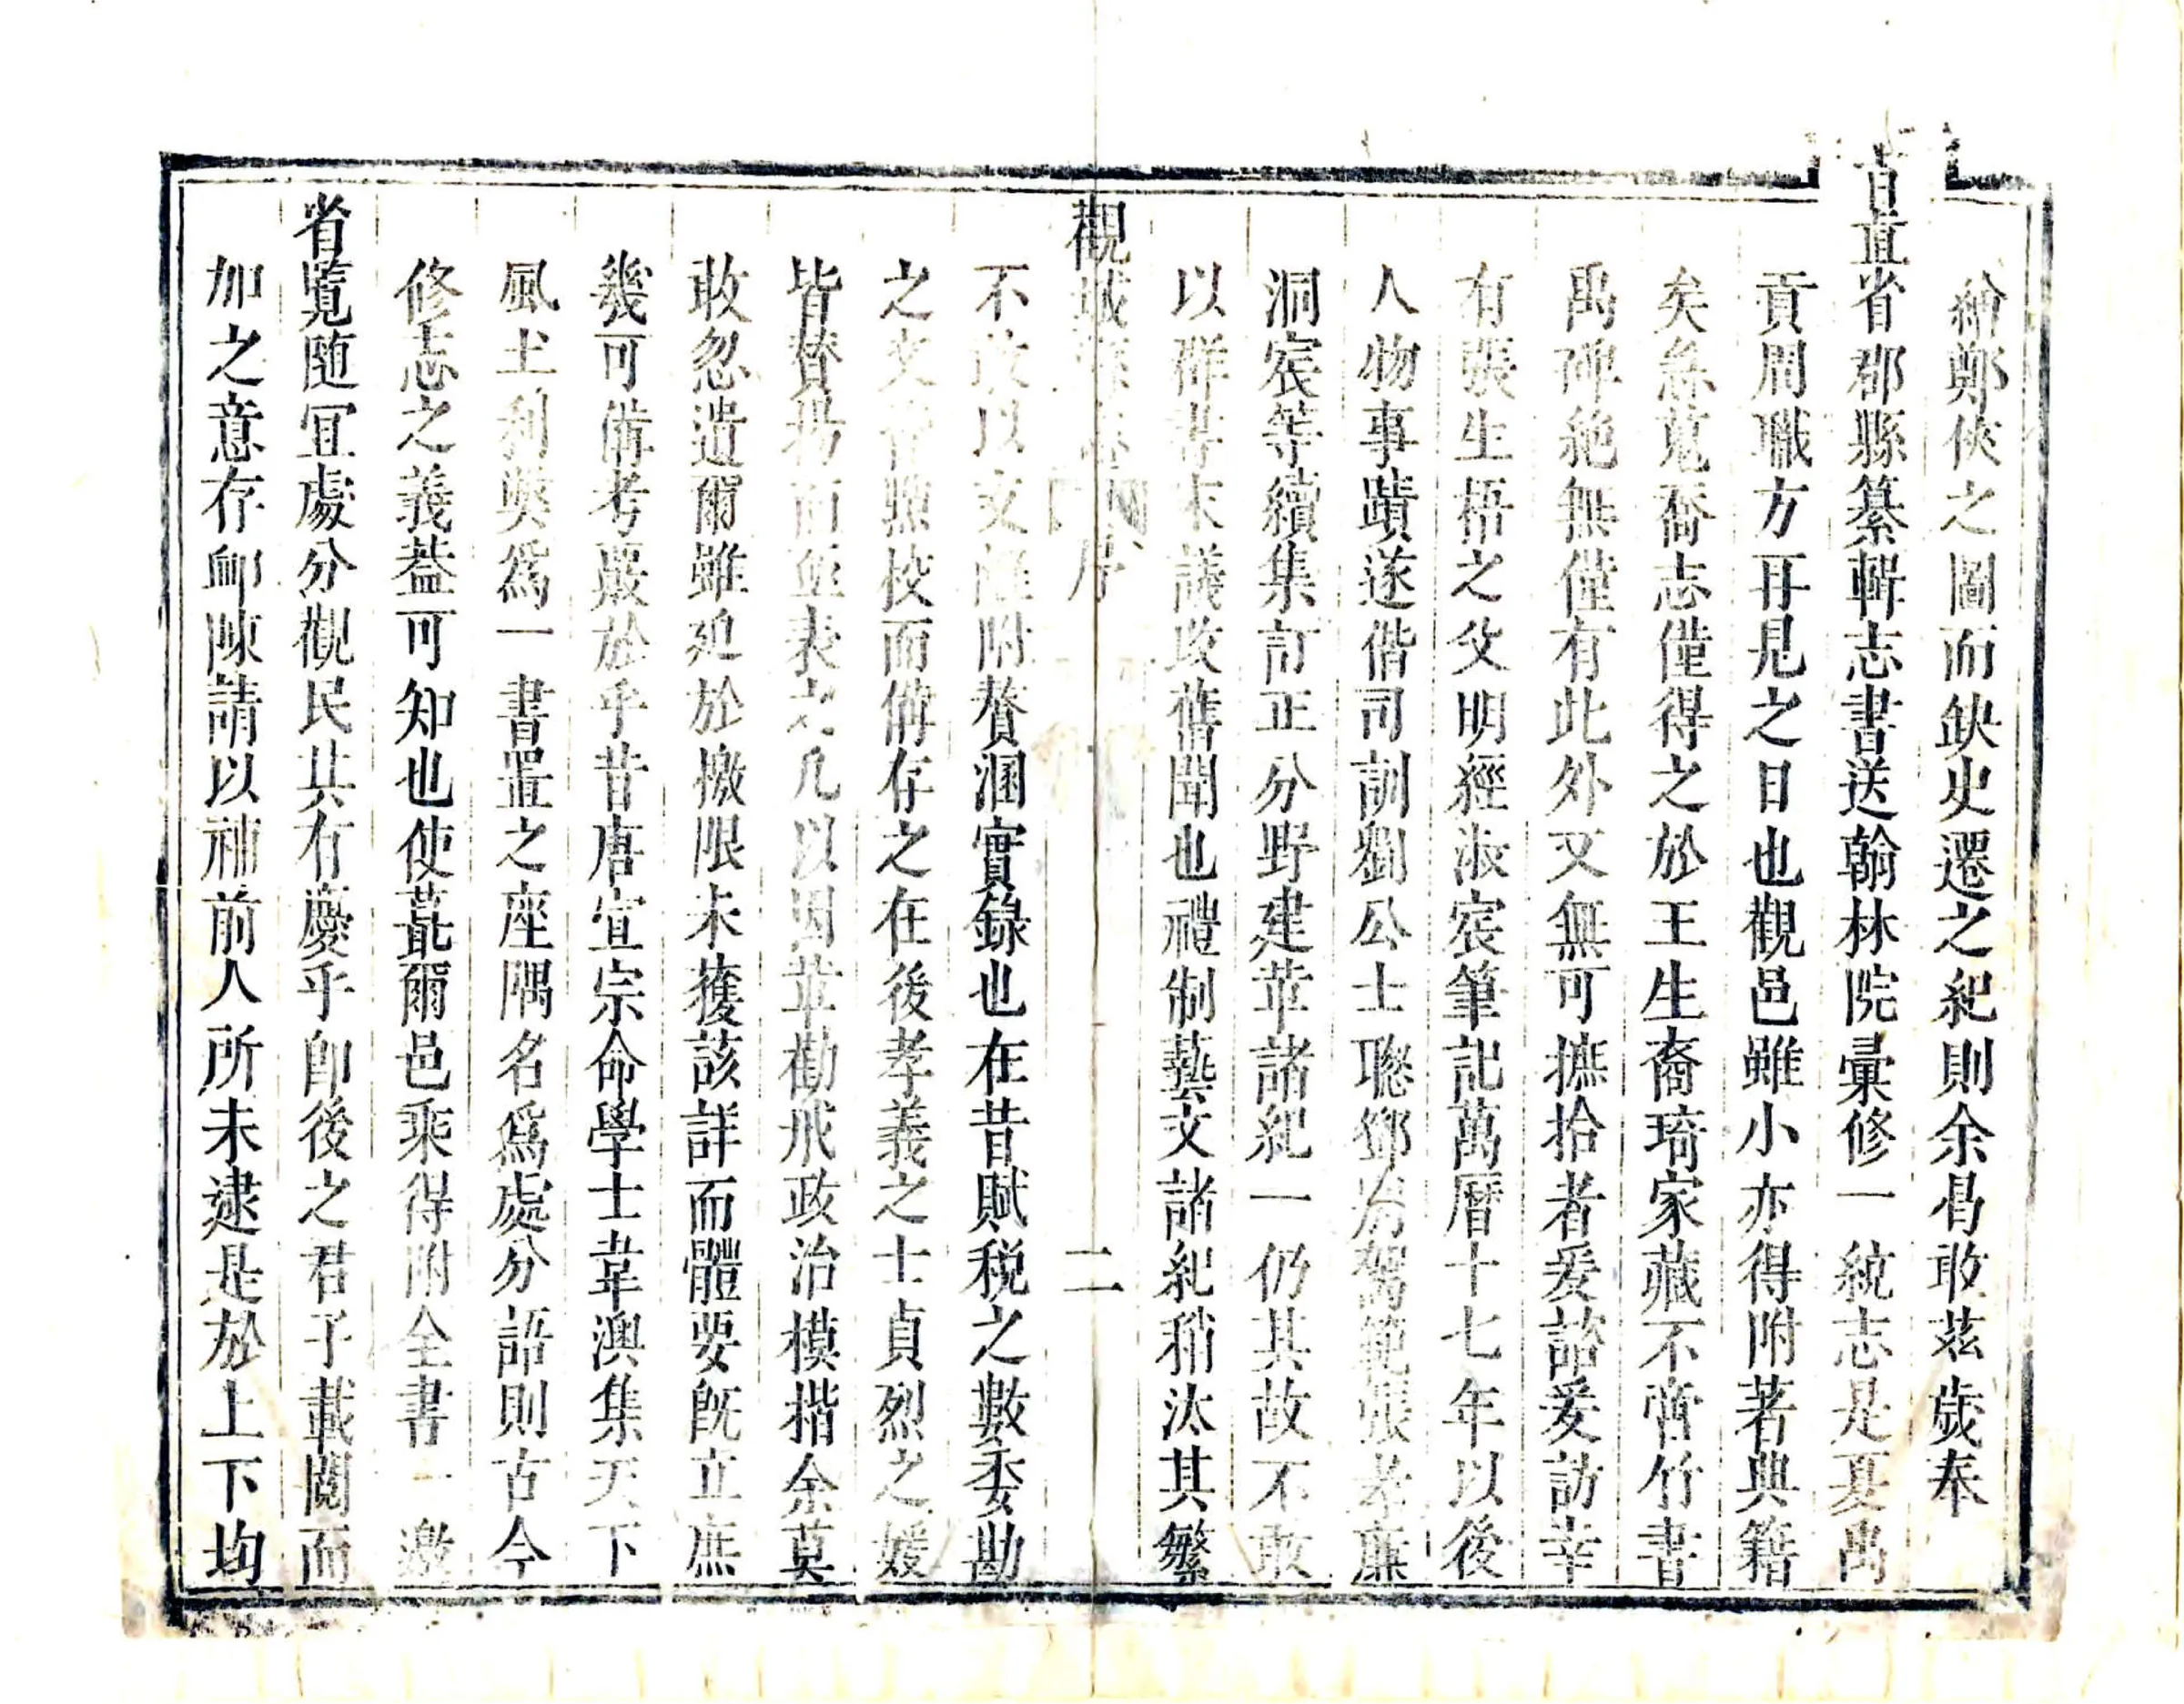 繪鄭俠之圖而缺史遷之紀則余曷敢茲歲奉
旨直省郡縣纂輯志書送翰林院彙修一統志是夏禹
貢周職方再見之日也觀邑雖小亦得附著典籍
矣無蒐舊志僅得之於王生裔琦家藏不啻竹書
禹碑絶無僅有此外又無可摭拾者爰諮爰訪幸
有張生梧之父明經淑宸筆記萬曆十七年以後
人物事蹟遂偕司訓劉公士聰鄧房駕範張孝廉
洞宸等續集訂正分野建革諸紀一仍其故不敢
以群書末議改舊聞也禮制藝文諸紀稍汰其繁
觀城縣志序
二
不敢以文雖附贅溷實錄也在昔賦税之數委勘
之文曾㸃校而備存之在後孝義之士貞烈之媛
皆賛揚而並表之凡以因革勸戒政治模楷余莫
敢忽遺爾雖迫於檄限未獲該詳而體要旣立庶
幾可備考嚴於乎昔唐宣宗命學士韋澳集天下
風土利獘爲一書置之座隅名爲處分語則古今
修志之義葢可知也使蕞爾邑乘得附全書一邀
省覧随冝處分觀民共有慶乎卽後之君子載閱而
加之意存䘏陳請以補前人所未逮是於上下均